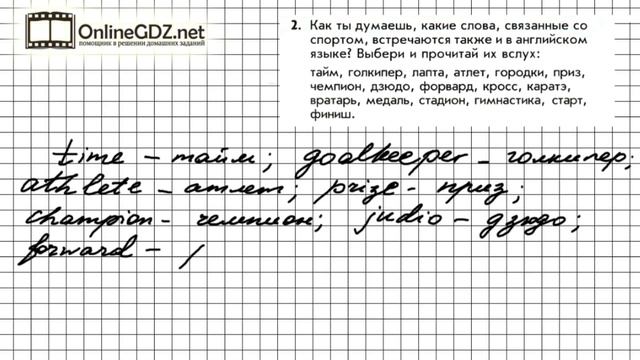 OnlineGDZ.net
помощник в решении домашних заданий
2. Как ты думаешь, какие слова, связанные со
спортом, встречаются также и в английском
языке? Выбери и прочитай их вслух:
тайм, голкипер, лапта, атлет, городки, приз,
чемпион, дзюдо, форвард, кросс, каратэ,
вратарь, медаль, стадион, гимнастика, старт,
финиш.
time – тайм; goalkeeper – голкипер;
athlete – атлет; prize – приз;
champion – чемпион; judio – дзюдо;
forward –